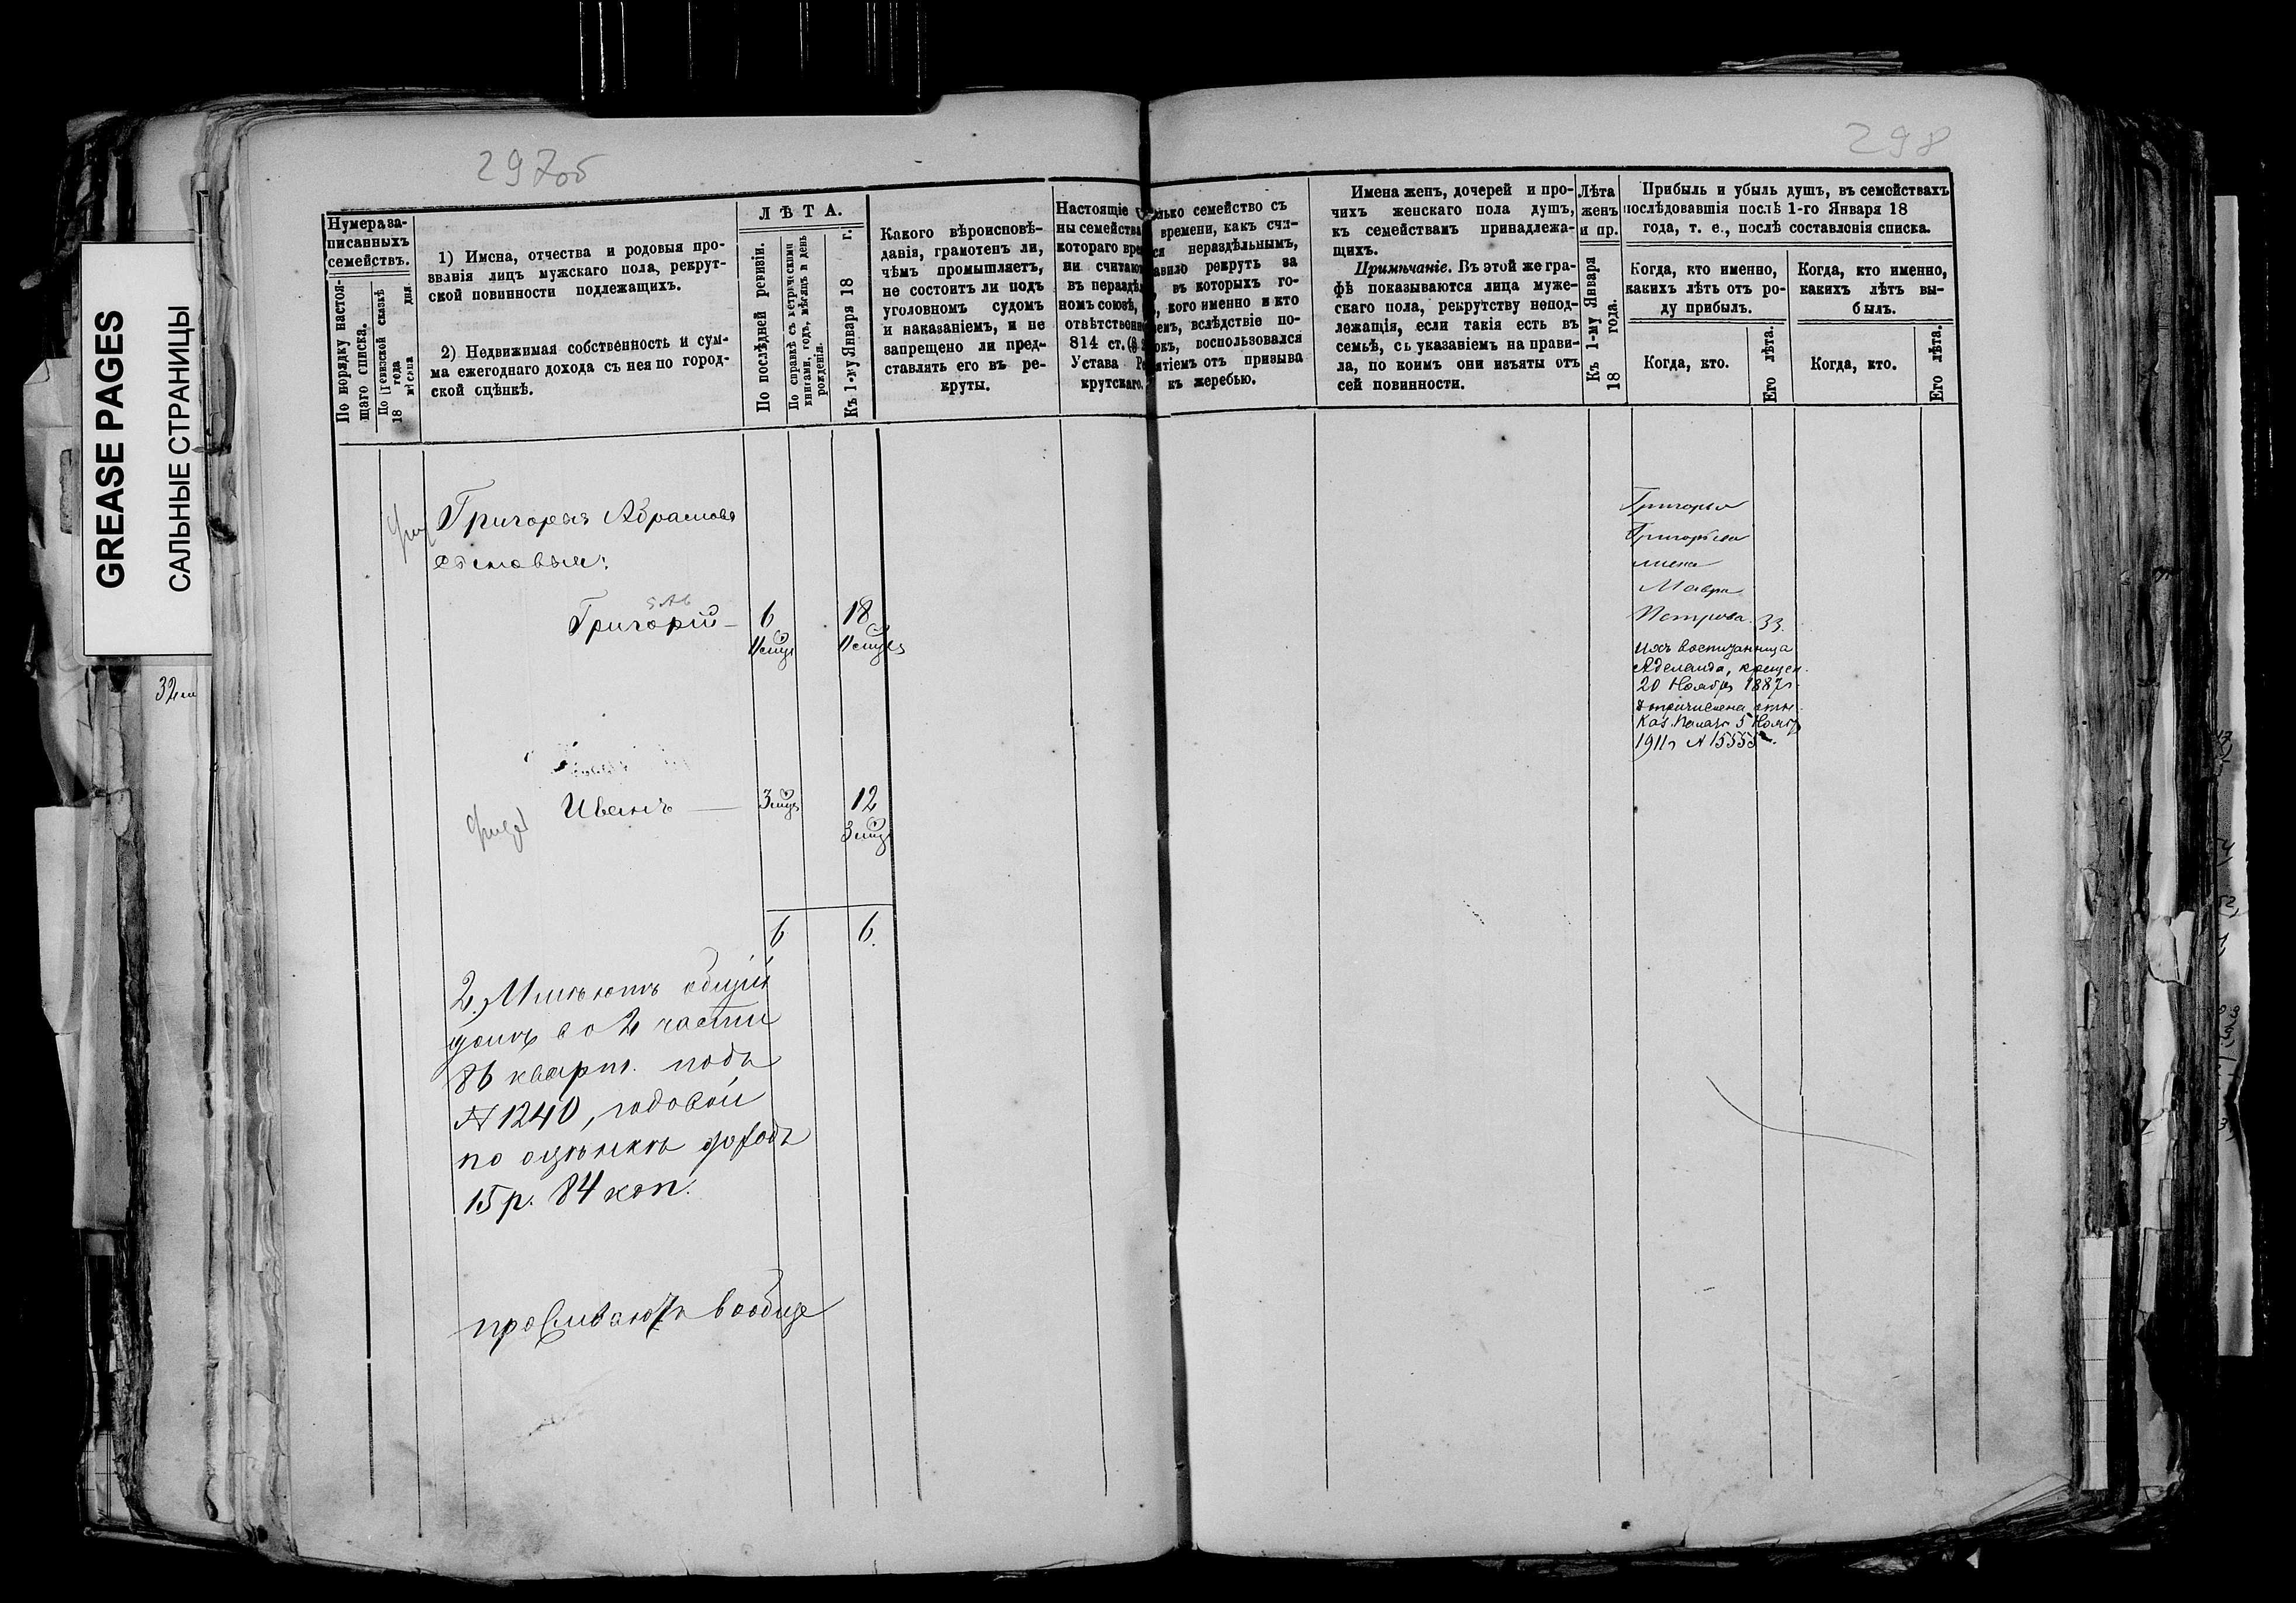 GREASE PAGES
САЛЬНЫЕ СТРАНИЦЫ
297об
298
Нумера за-
писанныхъ
семействъ.
По порядку настоя-
щаго списка.
По ревизской сказкѣ
18 года
мѣсяца дня.
1) Имена, отчества и родовыя про-
званія лицъ мужскаго пола, рекрут-
ской повинности подлежащихъ.
2) Недвижимая собственность и сум-
ма ежегоднаго дохода съ нея по город-
ской оцѣнкѣ.
ЛѢТА.
По послѣдней ревизіи.
По справкѣ съ метрическими
книгами, годъ, мѣсяцъ и день
рожденія.
Къ 1-му Января 18 г.
Какого вѣроисповѣ-
данія, грамотенъ ли,
чѣмъ промышляетъ,
не состоитъ ли подъ
уголовномъ судомъ
и наказаніемъ, и не
запрещено ли пред-
ставлять его въ ре-
круты.
Настоящіе
ны семейства
котораго вре
ни считают
въ нераздѣ
номъ союзѣ,
отвѣтственно
814 ст.
Устава Ре
крутскаго.
лько семейство съ
времени, какъ счи-
ся нераздѣльнымъ,
авило рекрутъ за
въ которыхъ го-
, кого именно и кто
емъ, вслѣдствіе по-
окъ, воспользовался
ятіемъ отъ призыва
къ жеребью.
Имена женъ, дочерей и про-
чихъ женскаго пола душъ,
къ семействамъ принадлежа-
щихъ.
Примѣчаніе. Въ этой же гра-
фѣ показываются лица муже-
скаго пола, рекрутству непод-
лежащія, если такія есть въ
семьѣ, съ указаніемъ на прави-
ла, по коимъ они изъяты отъ
сей повинности.
Лѣта
женъ
и пр.
Къ 1-му Января
18 года.
Прибыль и убыль душъ, въ семействахъ
послѣдовавшія послѣ 1-го Января 18
года, т. е., послѣ составленія списка.
Когда, кто именно,
какихъ лѣтъ отъ ро-
ду прибылъ.
Когда, кто.
Его лѣта.
Когда, кто именно,
какихъ лѣтъ вы-
былъ.
Когда, кто.
Его лѣта.
Григорья Абрамова
сыновья:
Григорій — 6 18
11 мцв 11 мцвъ
Иванъ — 3 мцв 12
3 мцв
6 6.
2. Имѣютъ общій
домъ во 2 части
86 кварт. подъ
№ 1240, годовой
по оцѣнкѣ доходъ
15 р. 84 коп.
проживаютъ вообще
Григорья
Григорьева
жена
Мавра
Петрова 33.
ихъ воспитанница
Аделаида, крещен.
20 Ноября 1887 г.
причислена
Каз. Палаты 5 Ноябр
1911 г № 15555
32